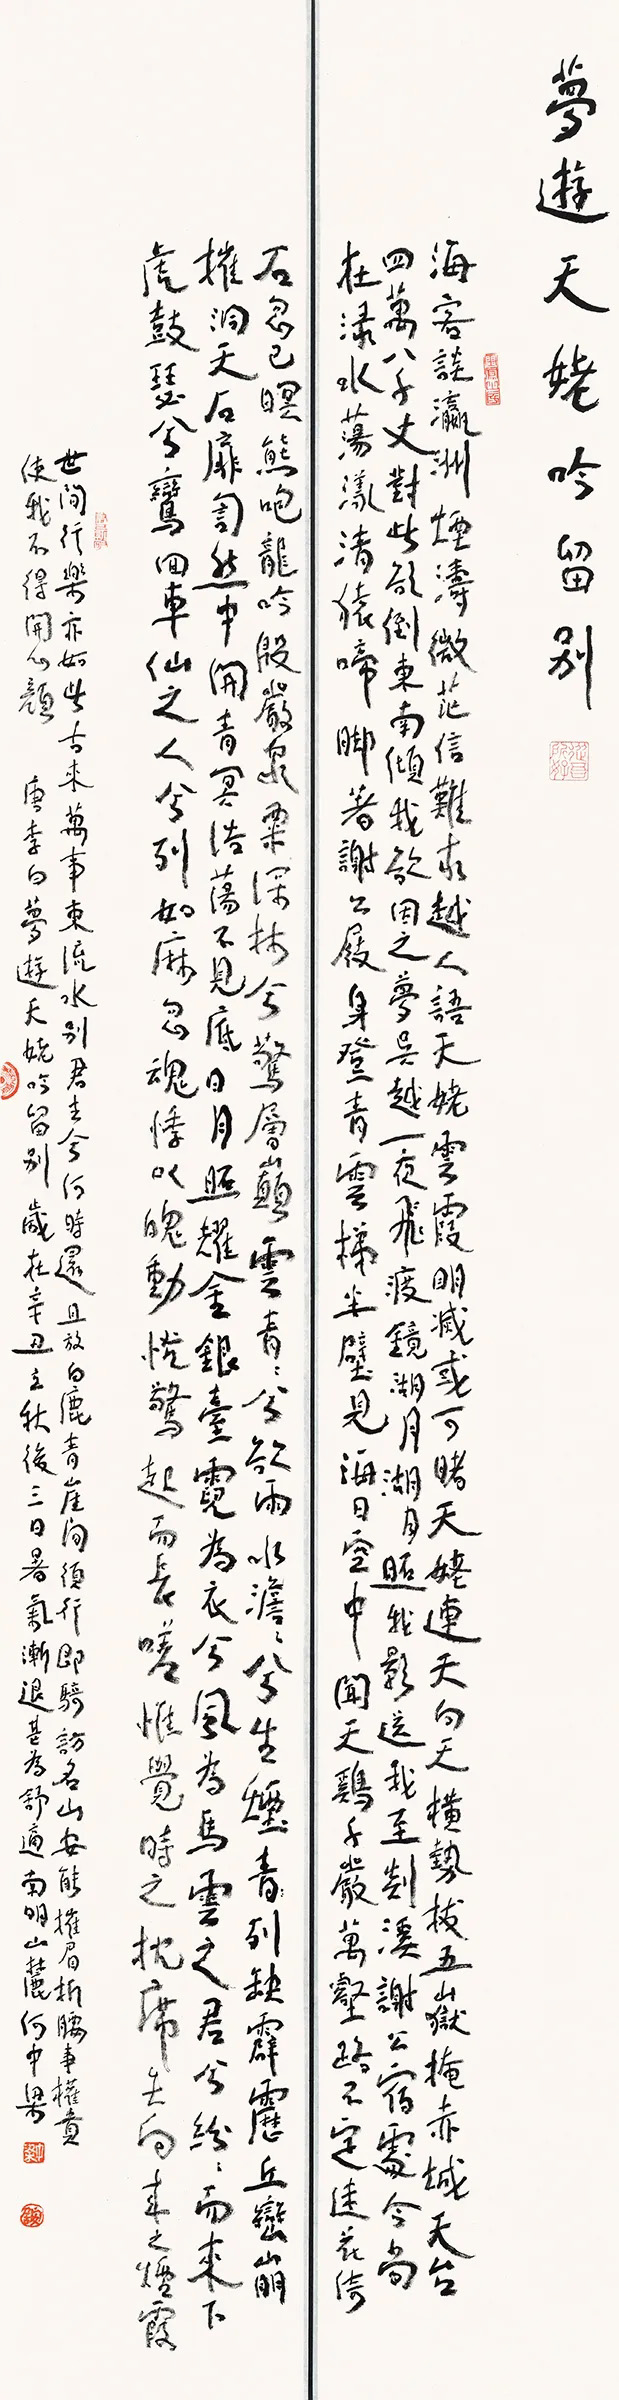 夢遊天姥吟留別
海客談瀛洲煙濤微茫信難求越人語天姥雲霞明滅或可睹天姥連天向天橫勢拔五嶽掩赤城天台
四萬八千丈對此欲倒東南傾我欲因之夢吳越一夜飛渡鏡湖月湖月照我影送我至剡溪謝公宿處今尚
在淥水蕩漾清猿啼腳著謝公屐身登青雲梯半壁見海日空中聞天雞千巖萬壑路不定迷花倚
石忽已暝熊咆龍吟殷巖泉栗深林兮驚層巔雲青青兮欲雨水澹澹兮生煙青列缺霹靂丘巒崩
摧洞天石扉訇然中開青冥浩蕩不見底日月照耀金銀臺霓為衣兮風為馬雲之君兮紛紛而來下
虎鼓瑟兮鸞回車仙之人兮列如麻忽魂悸以魄動怳驚起而長嗟惟覺時之枕席失向來之煙霞
世間行樂亦如此古來萬事東流水別君去兮何時還且放白鹿青崖間須行即騎訪名山安能摧眉折腰事權貴
使我不得開心顏 唐李白夢遊天姥吟留別 歲在辛丑立秋後三日暑氣漸退甚為舒適南明山麓何中梁